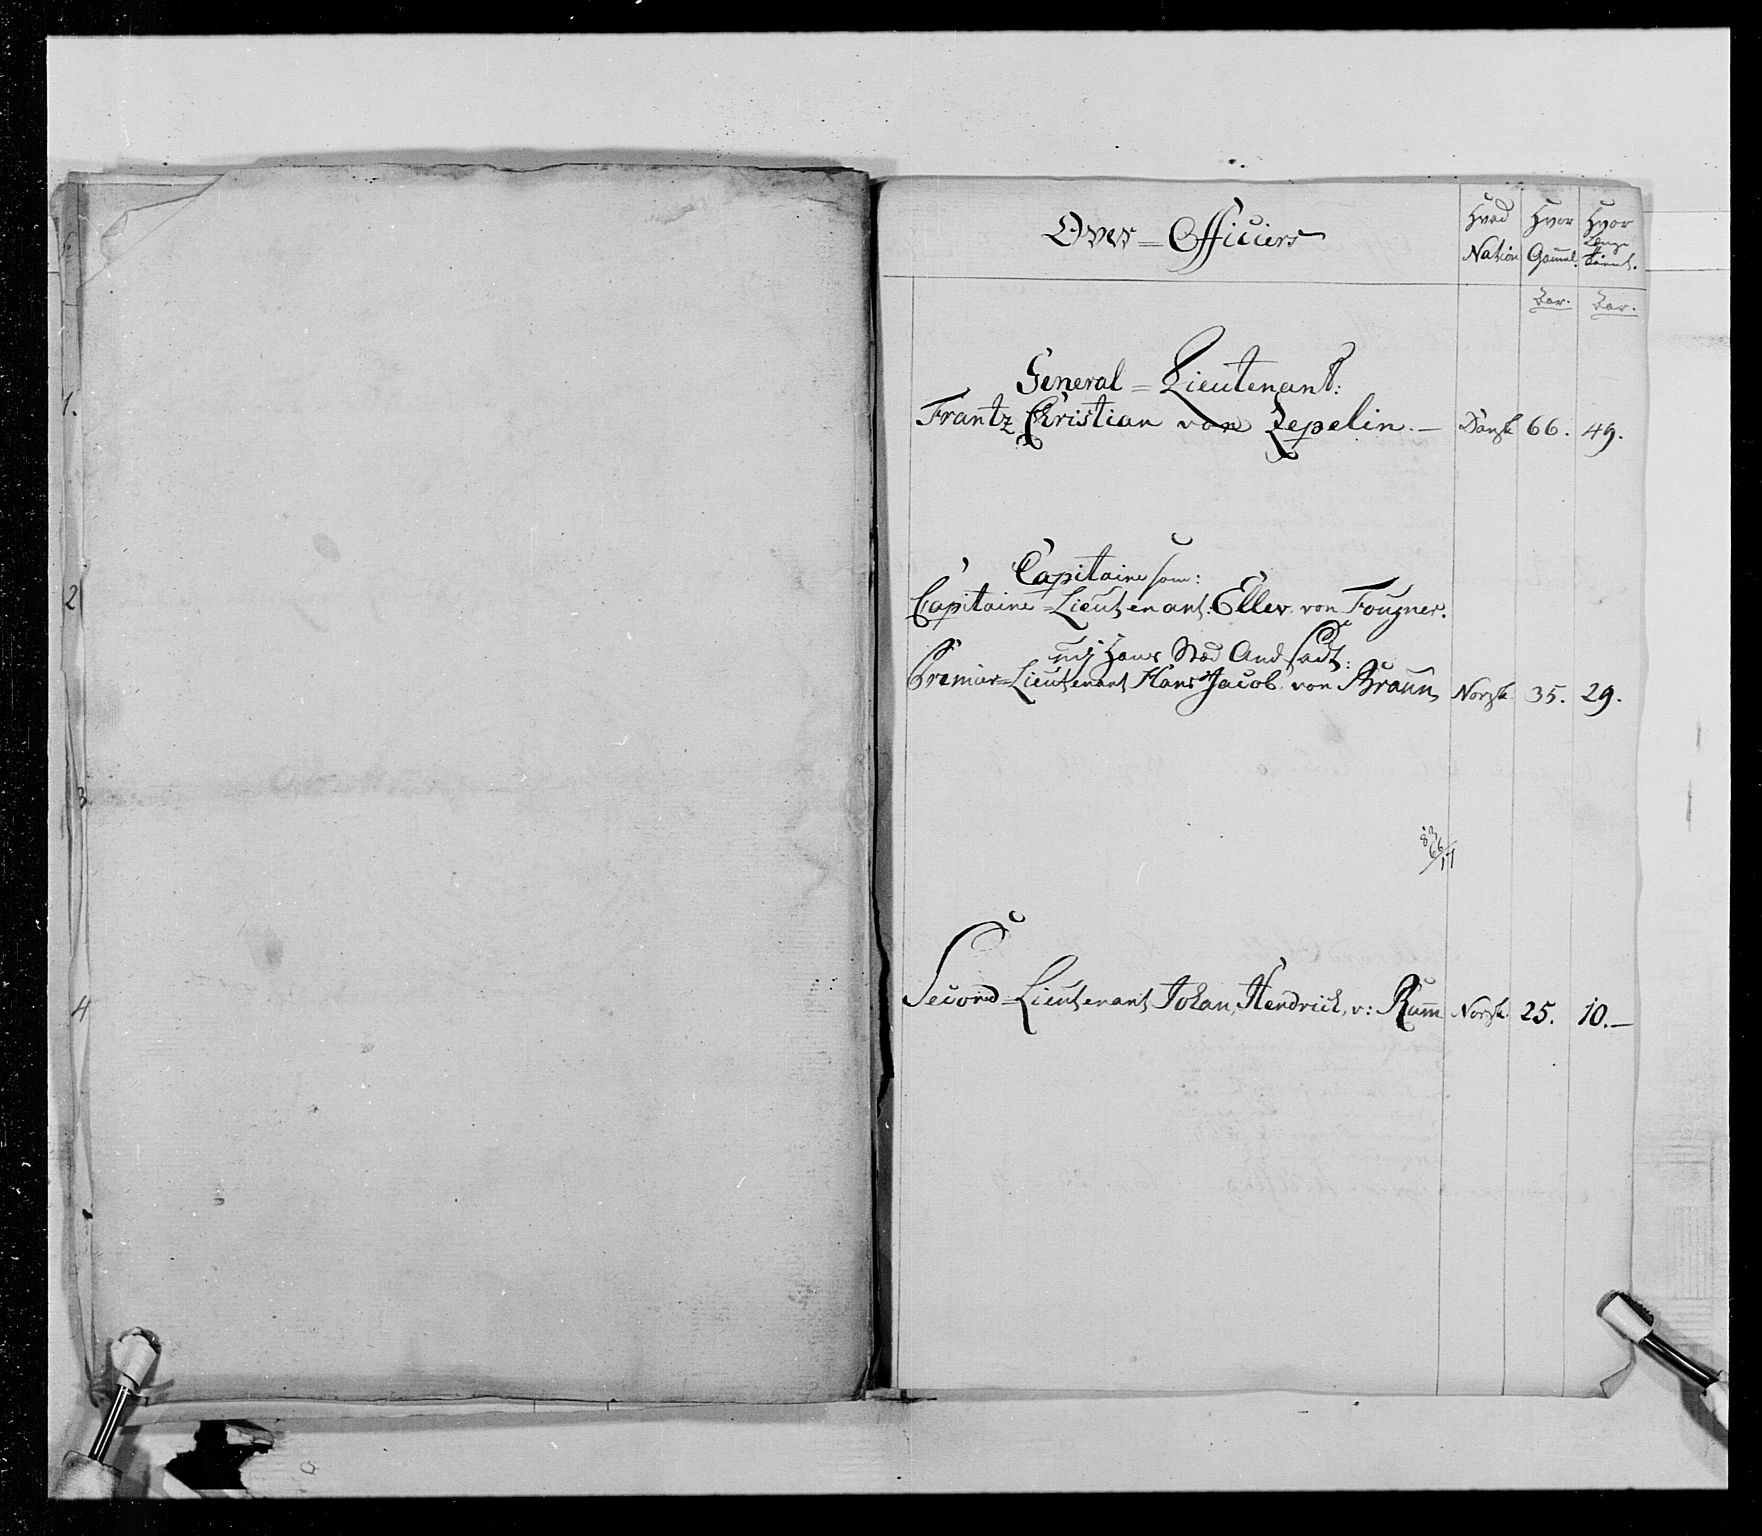 1.
2
3
4
Over=Officiers
Hvad Nation
Hvor Gammel.
Hvor Længe tient.
Aar. Aar.
General=Lieutenant:
Frantz Christian von Zepelin.— Dansk 66. 49.
Capitaine som:
Capitaine=Lieutenant: Eller von Fougner.
Hans And
Premier=Lieutenant Hans Jacob von Braun, Norsk 35. 29.
83
66
17
Second=Lieutenant Johan Hendrich v: Ramm Norsk. 25. 10.—